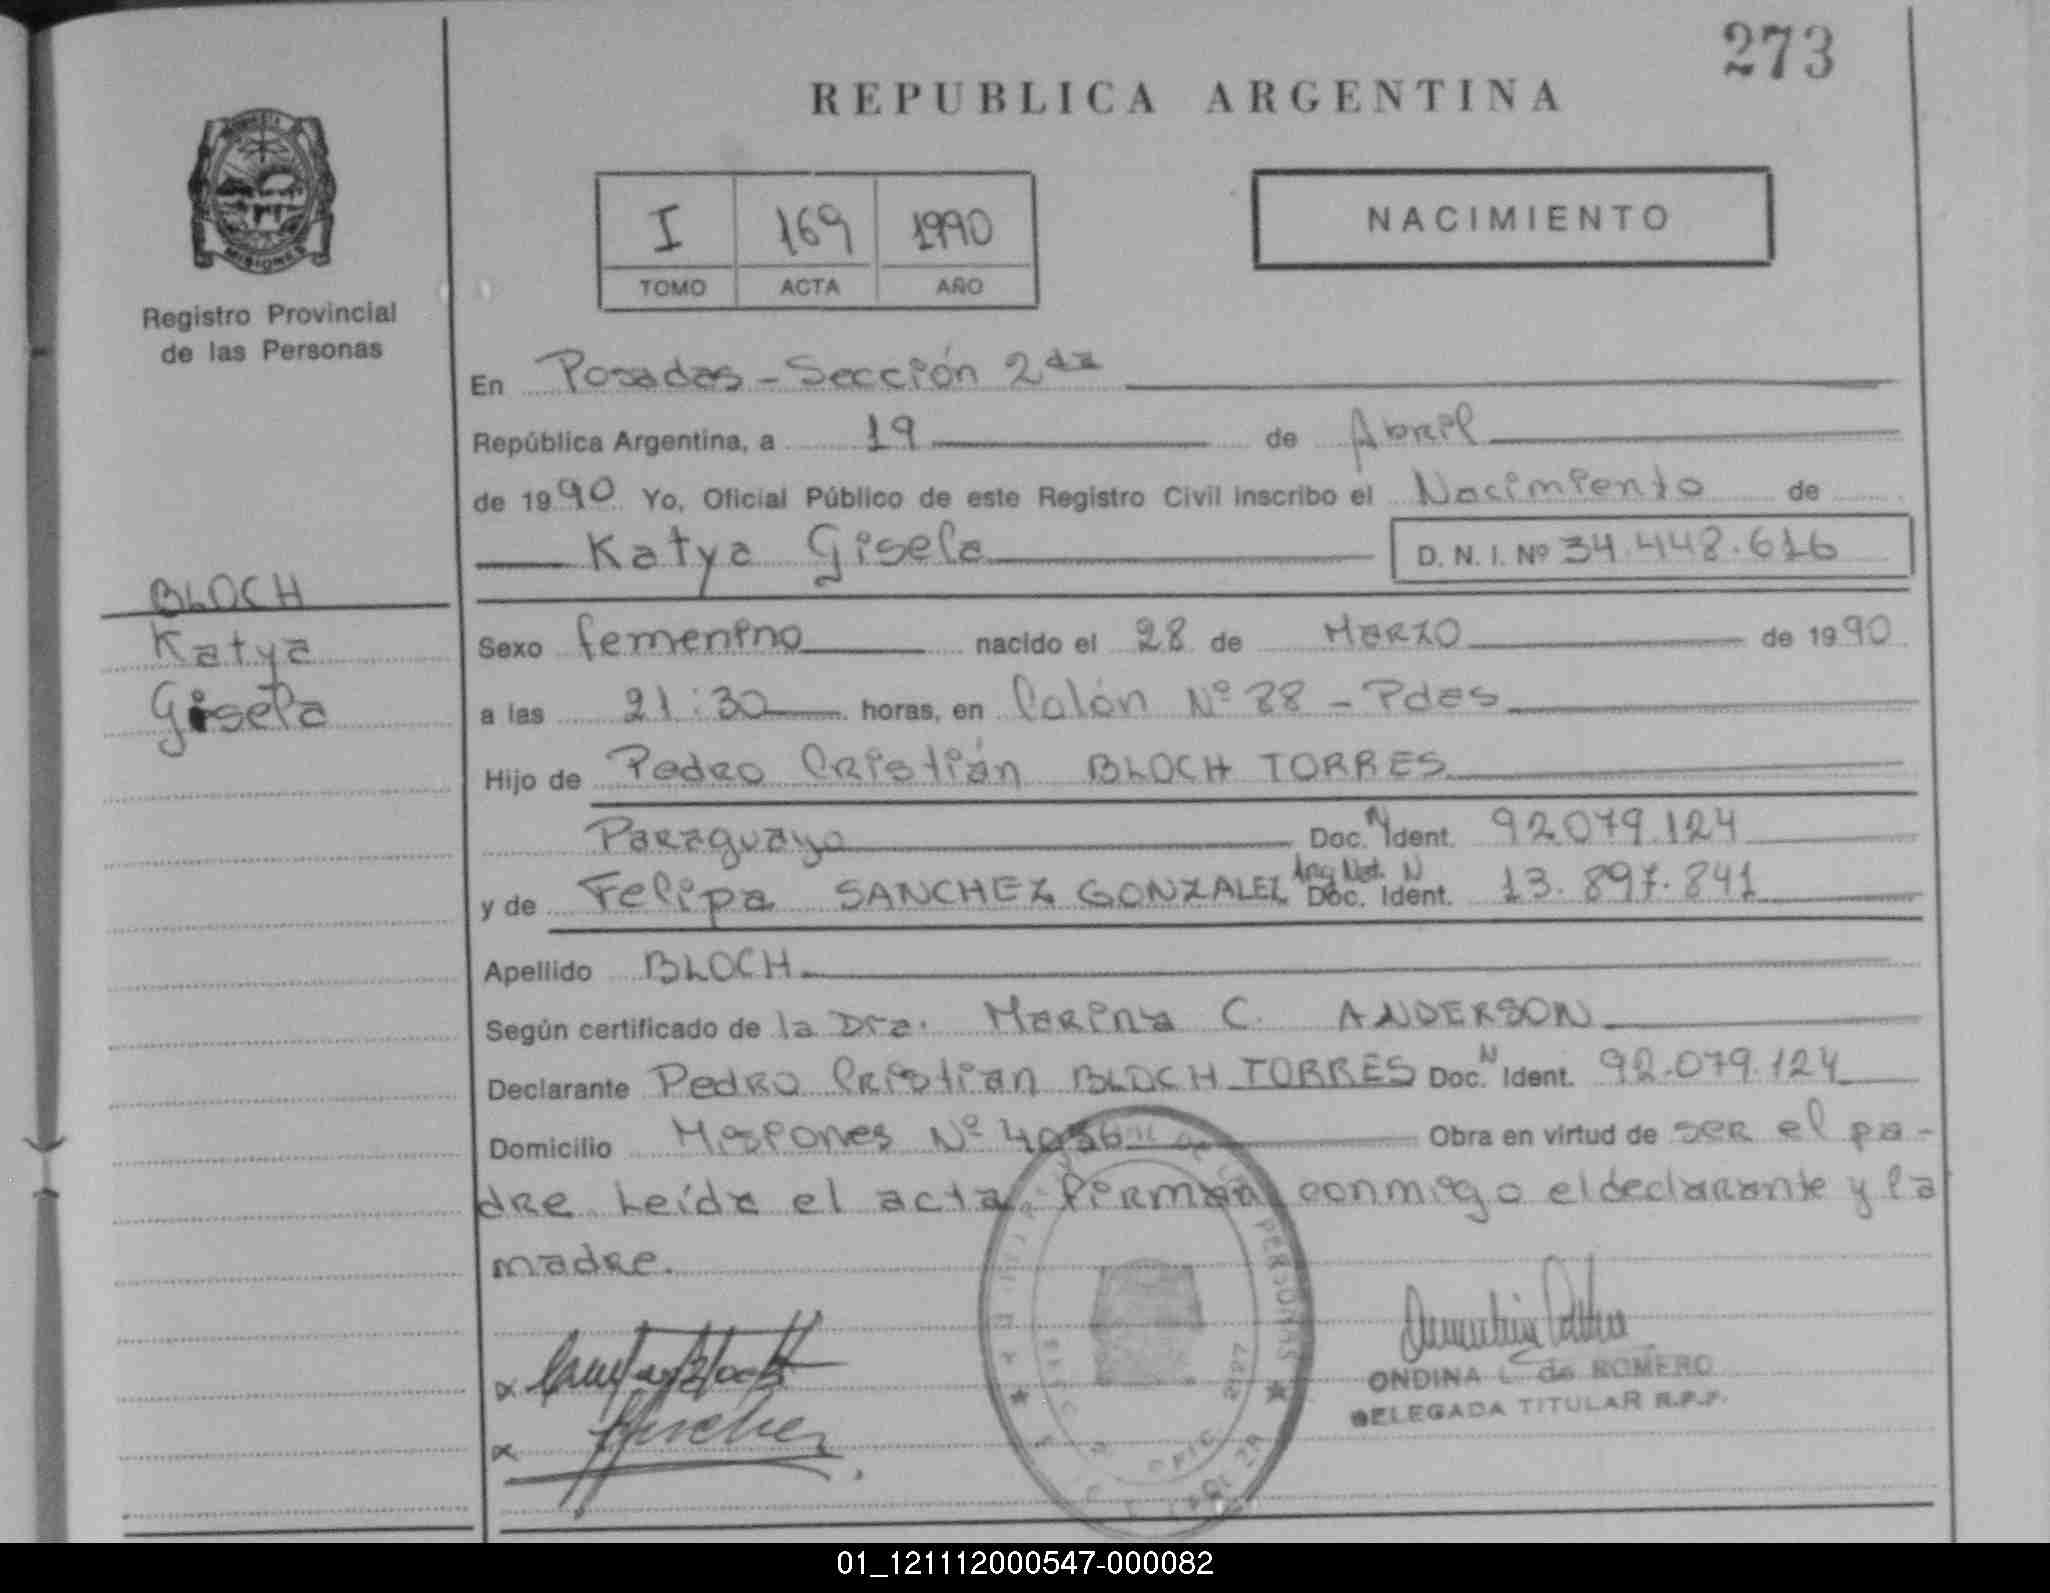 273
REPUBLICA ARGENTINA
MISIONES
Registro Provincial
de las Personas
I 169 1990
TOMO ACTA AÑO
NACIMIENTO
En Posadas - Sección 2da
República Argentina, a 19 de Abril
de 1990 Yo, Oficial Público de este Registro Civil inscribo el Nacimiento de
Katya Gisela D. N. I. Nº 34.448.616
BLOCH
Katya
Gisela
Sexo femenino nacido el 28 de Marzo de 1990
a las 21:30 horas, en Colón Nº 88 - Pdas
Hijo de Pedro Cristián BLOCH TORRES
Paraguayo Doc. N Ident. 92079.124
y de Felipa SANCHEZ GONZALEZ Arg Nat. Doc. N Ident. 13.897.841
Apellido BLOCH
Según certificado de la Dra. Marina C. ANDERSON
Declarante Pedro Cristian BLOCH TORRES Doc. N Ident. 92.079.124
Domicilio Misiones Nº 4056 Obra en virtud de ser el pa-
dre. Leída el acta, firman conmigo el declarante y la
madre.
PERSONAS
2127
ONDINA L. de ROMERO
DELEGADA TITULAR R.P.P.
01_121112000547-000082